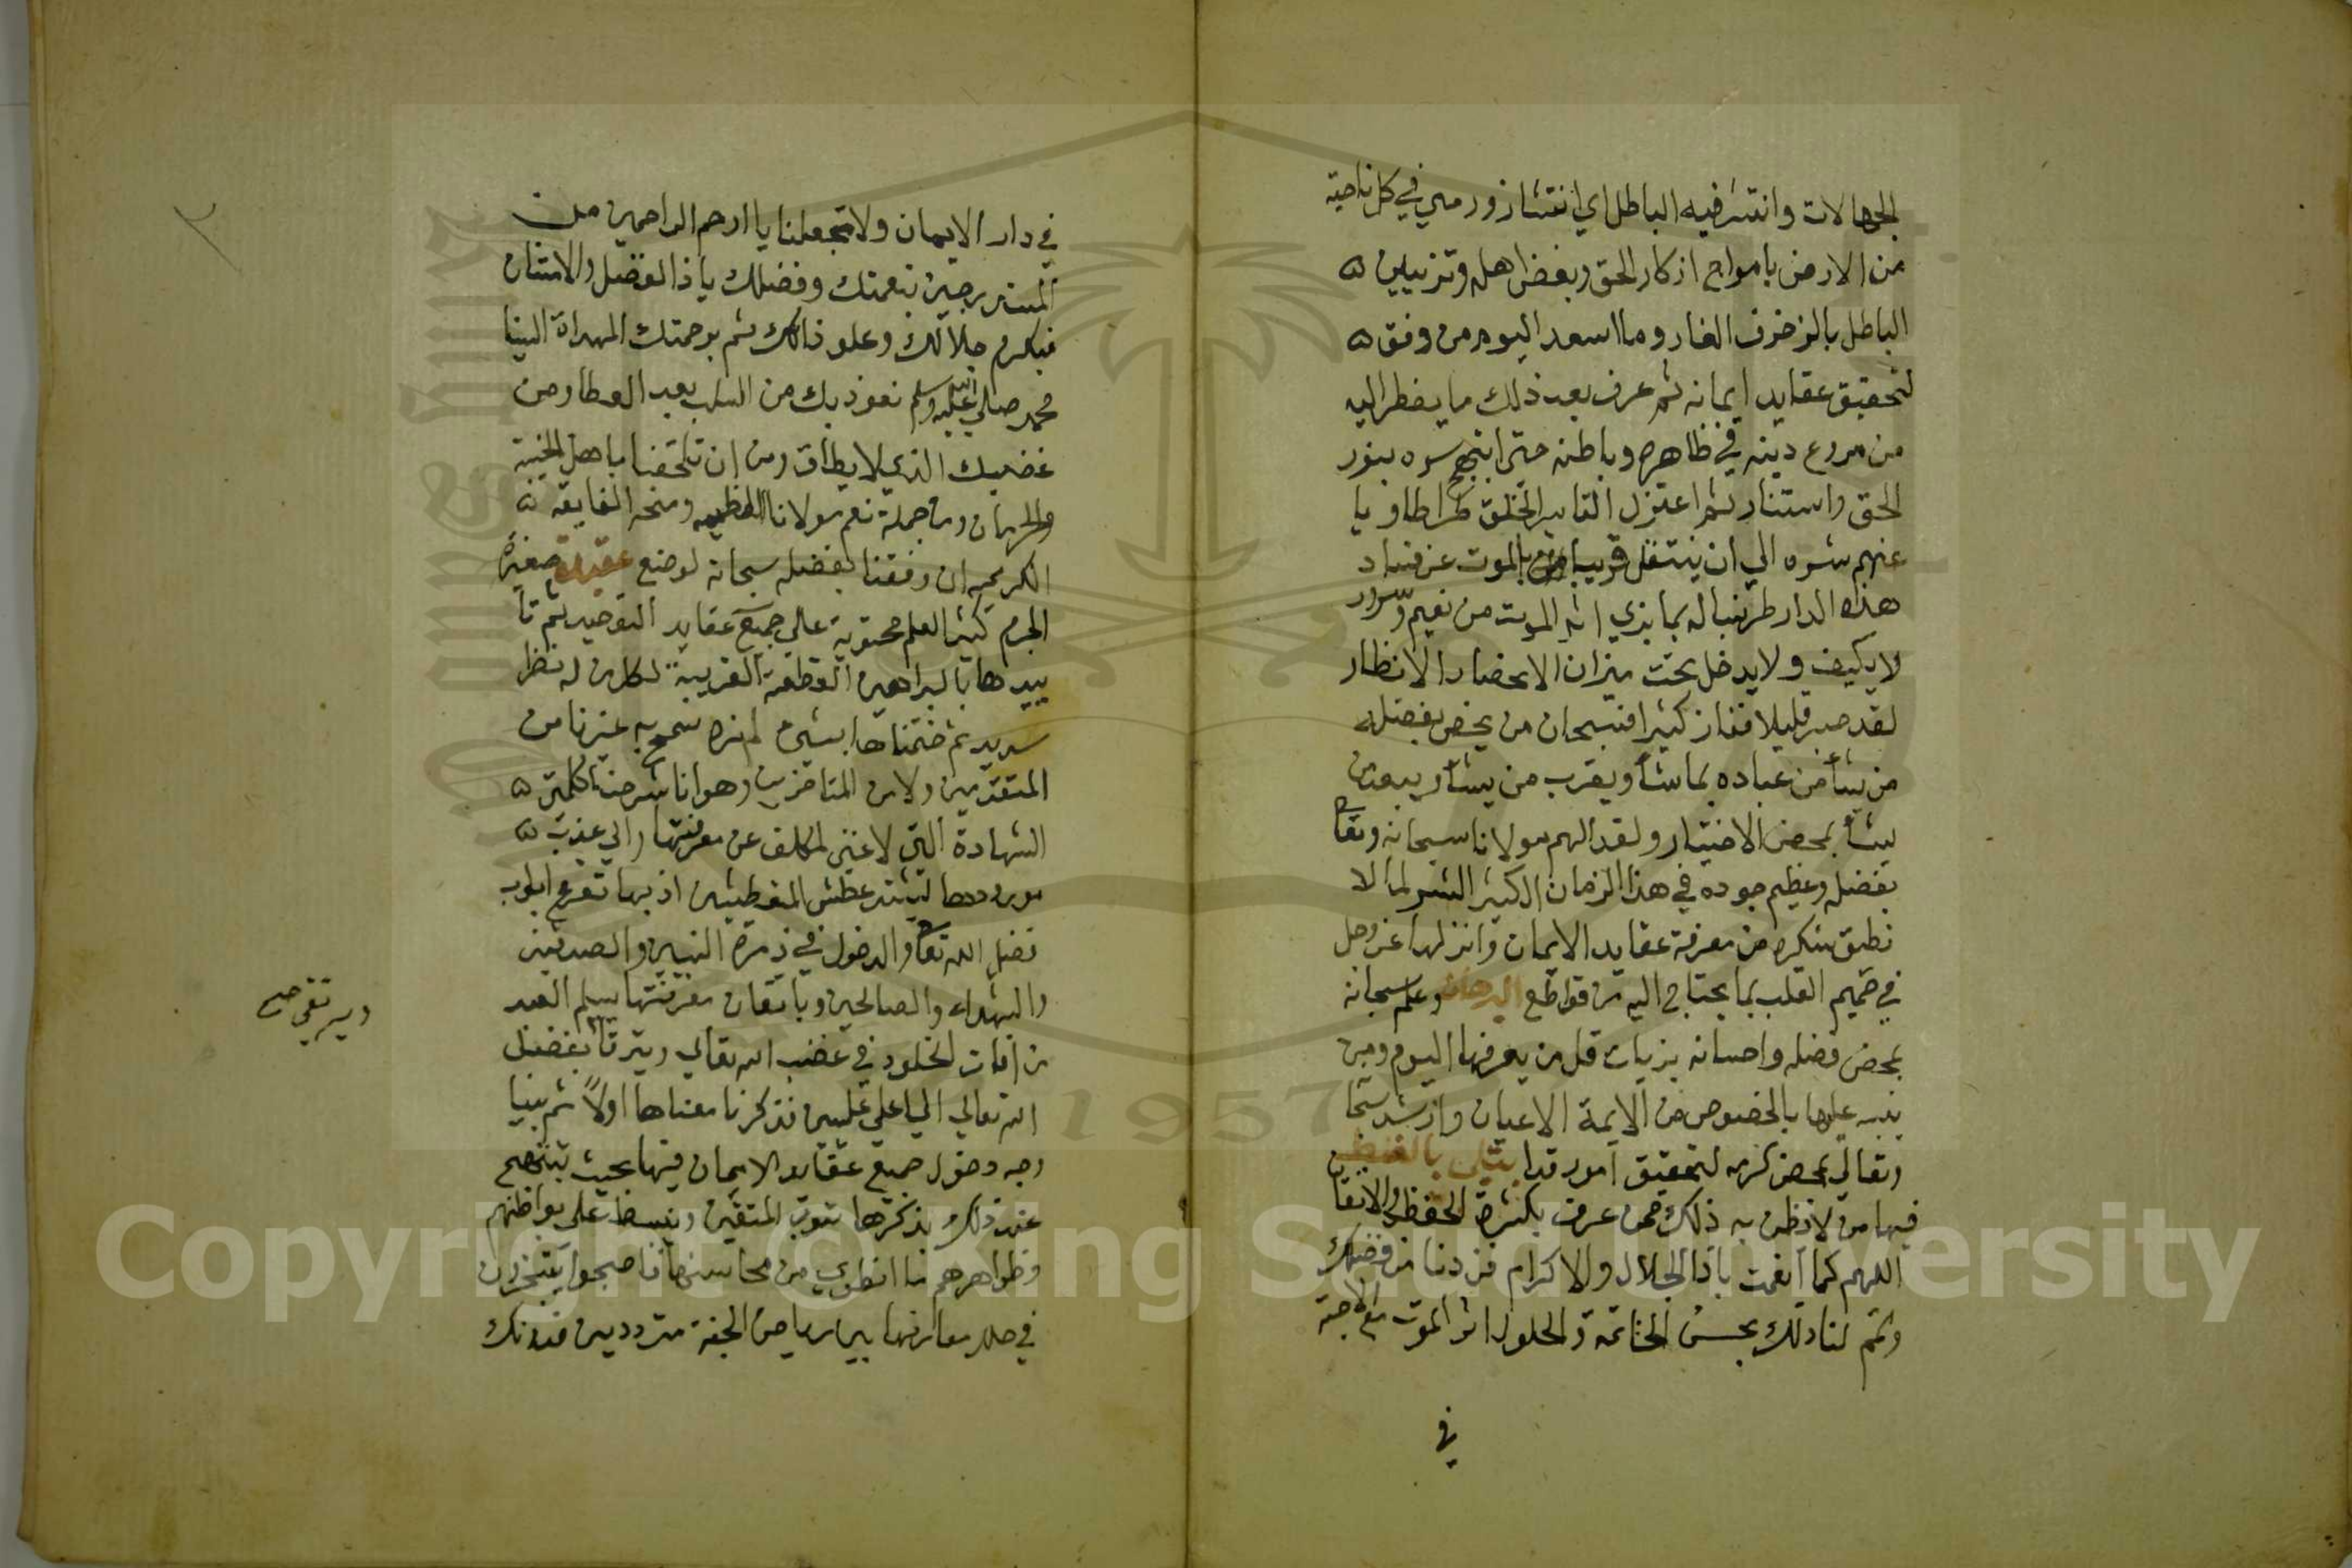 الجهالات وانتشر فيه الباطل اي انتشار ورمي في كل ناحية
من الارض بامواج انكار الحق وبغض اهله وتزيين
الباطل بالزخرف الغار وما اسعد اليوم من وفق
لتحقيق عقايد ايمانه ثم عرف بعد ذلك ما يضطر اليه
من فروع دينه في ظاهره وباطنه حتى ابتهج سره بنور
الحق واستنار ثم اعتزل الخلق طرا طاويا
عنهم شره الي ان ينتقل قريبا بالموت عن فساد
هذه الدار طربا له بما يري اثر الموت من نعيم وسرور
لا يكيف ولا يدخل تحت ميزان الانظار
لقد صبر قليلا ففاز كثيرا فسبحان من يخص بفضله
من يشأ من عباده بما شأ ويقرب من يشأ ويبعد من
يشأ بمحض الاختيار ولقد الهم مولانا سبحانه وتعا
بفضله وعظيم جوده في هذا الزمان الكثير الشر لما لا
نطيق شكره من معرفة عقايد الايمان وانزلها عز وجل
في صميم القلب بما يحتاج اليه من قواطع البرهان وعلم سبحانه
بمحض فضله واحسانه جزيات قل من يعرفها اليوم ومن
ينبه عليها بالخصوص من الايمة الاعيان وارشد سبحا
وتعالي بمحض كرمه لتحقيق امور قد ابتلي بالغلط
فيها من لا يظن به ذلك ممن عرف بكثرة الحفظ والاتقان
اللهم كما انعمت ياذا الجلال والاكرام فزدنا من فضلك
وتمم لنا ذلك بحسن الخاتمة والحلول اثر الموت مع الاحبة
في
في دار الايمان ولا تجعلنا يا ارحم الراحمين من
المستدرجين بنعمتك وفضلك ياذا الفضل والامتنان
فبكرم جلالك وعلو ذاتك ثم برحمتك المهداة الينا
محمد صلي الله عليه وسلم نعوذ بك من السلب بعد العطا ومن
غضبك الذي لا يطاق ومن ان تلحقنا باهل الخيبة
والحرمان ومن جملة نعم مولانا العظيمه ومنحه الفايقه
الكريمه ان وفقنا بفضله سبحانه لوضع عقيدة صغيرة
الجرم كثيرة العلم محتوية علي جميع عقايد التوحيد ثم تأ
ييدها بالبراهين القطعية القريبة لكل من له نظر
سديد ثم ختمناها بشئ لم نره سمح به غيرنا من
المتقدمين ولا من المتاخرين وهو انا شرحنا كلمتي
الشهادة التي لا غني لمكلف عن معرفتها والي عذب
مورودها ليشتد عطش المتعطشين اذ بها تقرع ابواب
فضل الله تعا والدخول في زمرة النبيين والصديقين
والشهداء والصالحين وباتقان معرفتها يسلم العبد
من افات الخلود في غضب الله تعالي ويترقا بفضل
الله تعالي الي اعلي عليين فذكرنا معناها اولاً ثم بينا
وجه دخول جميع عقايد الايمان فيها بحيث تبتهج
عند ذلك بذكرها قلوب المتقين وينبسط علي بواطنهم
وظواهرهم ما انطوي من محاسنها فاصبحوا يتبخترون
في حلل معارفها بين رياض الجنة مترددين فدونك